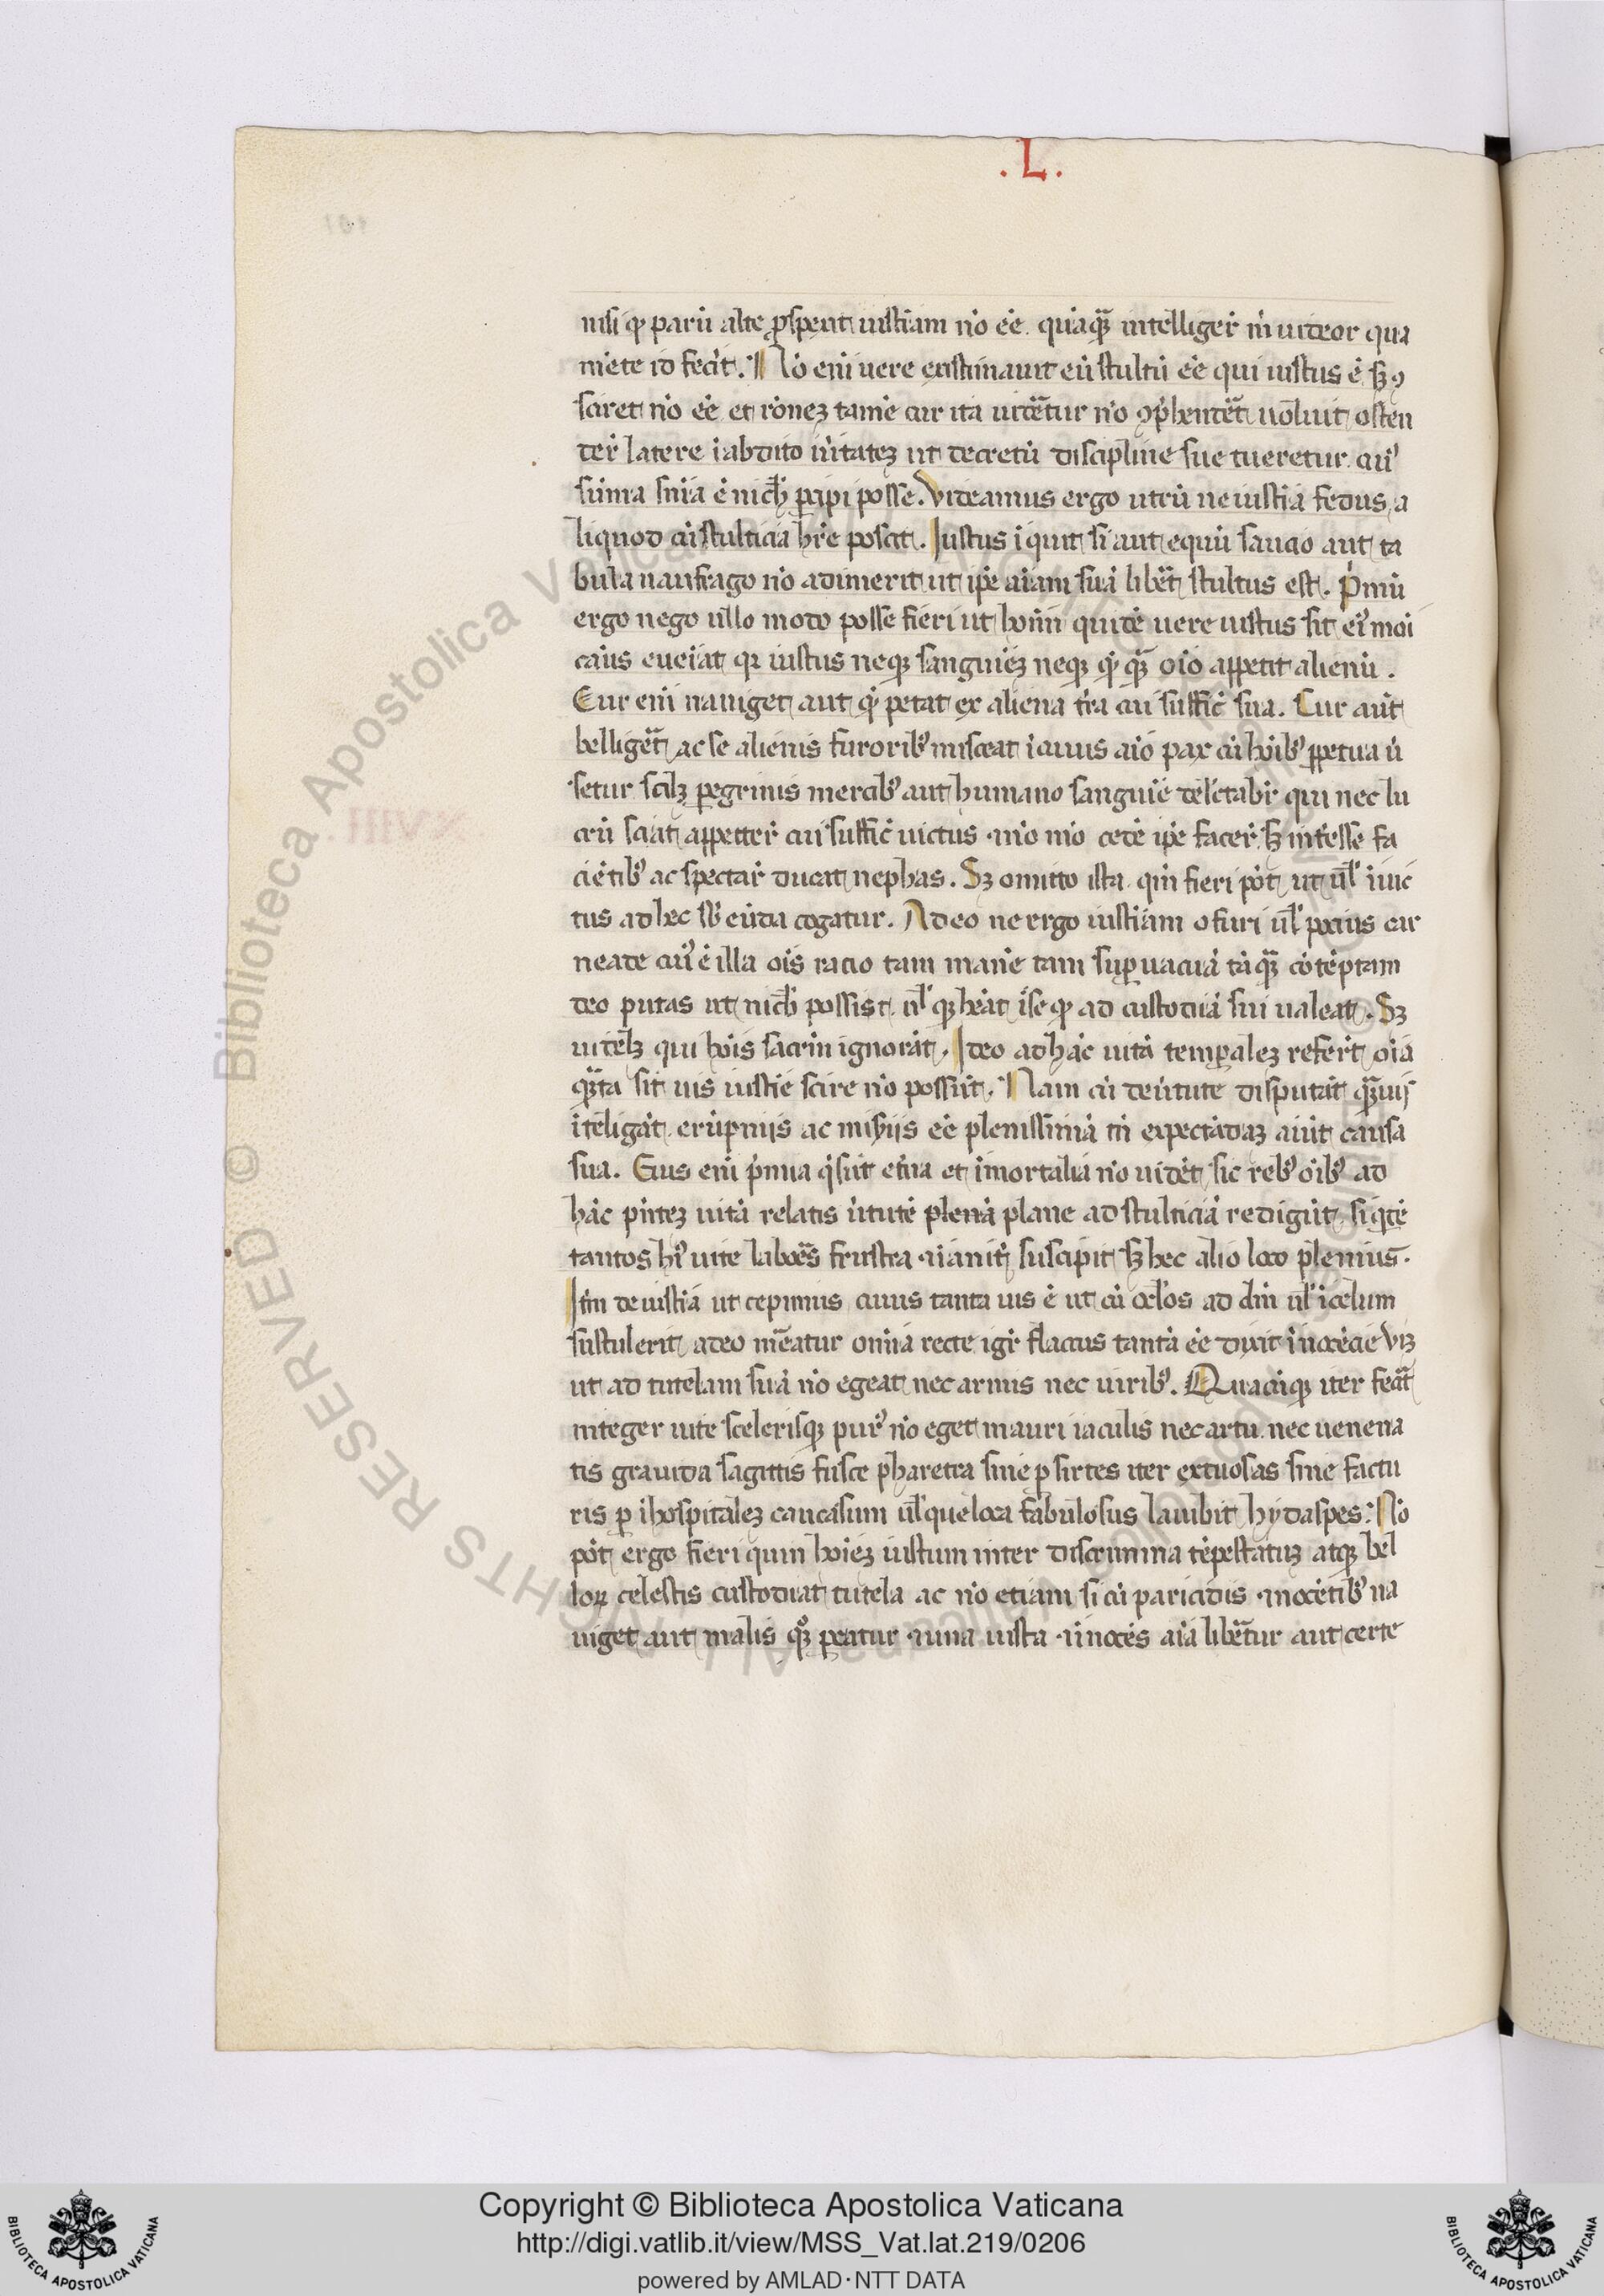 .L.
nisi qꝫ parū alte ꝓspexit iustiam nō eē. quāqȝ intelliger̄ m̄ uideor qua
mēte id fecit. Nō eni uere existimauit eū stultū eē qui iustus ē sꝫ ꝯ
sciret nō eē et rōneꝫ tamē cur ita uidēatur nō ꝯprhendēt uoluit osten
der̄ latere i abdito ūitateꝫ ut decretū discipline sue tueretur cuiꝰ
sūma snīa ē nichil ꝑcipi posse. Videamus ergo utrū ne iustia fedus a
liquod cū stulticia hrē poscit. Iustus iquit si aut equū saucio aut ta
bula naufrago nō adimerit ut ipē aīam suā libet stultus est. Pͥmū
ergo nego ullo modo posse fieri ut homī quidē uere iustus sit eiꝰmoi
casus eueiat qꝛ iustus neqꝫ sanguieꝫ neqꝫ qͥ qȝ oīo appetit alienū.
Cur enī nauiget aut qͥ petat ex aliena tr̄a cui suffic̄ sua. Cur aut
belliget ac se alienis furoribꝰ misceat i cuius aīo pax cū hoībꝰ ꝑpetua ū
setur scilꝫ ꝑegrinis mercibꝰ aut humano sanguīe delectabr̄ qui nec lu
crū sciat appetter̄ cui suffic̄ uictus nō mō cedē ipē facer̄ sꝫ interesse fa
ciētibꝰ ac spectar̄ ducat nephas. Sꝫ omitto ista qm̄ fieri pōt ut ul̄ iuic
tus ad hec sbeūda cogatur. Adeo ne ergo iustiam o furi ul̄ pocius car
neade cuiꝰ ē illa oīs racio tam inanē tam suꝑuacuā tāqȝ cōtēptam
deo putas ut nichil possist ul̄ qꝫ heāt ise qꝫ ad custodiā sui ualeat. Sꝫ
uidelꝫ qui hoīs sacrm̄ ignorāt. Ideo ad hāc uitā tempaleꝫ refert oīa
qȝta sit uis iustie scire nō possūt. Nam cū de utute disputāt qȝuis
iteligāt erūpniis ac misiis eē plenissimā tn̄ expectādaꝫ aiūt causa
sua. Eius enī pͥmia qͥ sūt etn̄a et imortalia nō uidēt sic rebꝰ oībꝰ ad
hāc pn̄teꝫ uitā relatis ututē plenā plane ad stulticiā redigūt siqͥdē
tantos hꝰ uite laboēs frustra iānitͥ suscipit sꝫ hec alio loco plenius.
Itm̄ de iustiā ut cepimus cuius tanta uis ē ut cū oclos ad dm̄ ul̄ icelum
sustulerit adeo mēatur omīa recte igr̄ flaccus tantā eē dixit inocēcie uiꝫ
ut ad tutelam suā nō egeat nec armis nec uiribꝰ. Quacūqꝫ iter feat
integer uite scelerisqꝫ purꝰ nō eget mauri iaculis nec artu nec uenena
tis grauida sagittis fusce pharetra siue ꝑ sirtes iter extuosas siue factu
ris ꝑ ihospitaleꝫ caucasum ul̄ que loca fabulosus lambit hydaspes. Nō
pōt ergo fieri quin hoīeꝫ iustum inter discrimina tēpestatuꝫ atqꝫ bel
loꝝ celestis custodiat tutela ac nō etiam si cū paricidis nocētibꝰ na
uiget aut malis qꝰ peatur una iusta inocēs aīa libēatur aut certe
Copyright © Biblioteca Apostolica Vaticana
http://digi.vatlib.it/view/MSS_Vat.lat.219/0206
powered by AMLAD·NTT DATA